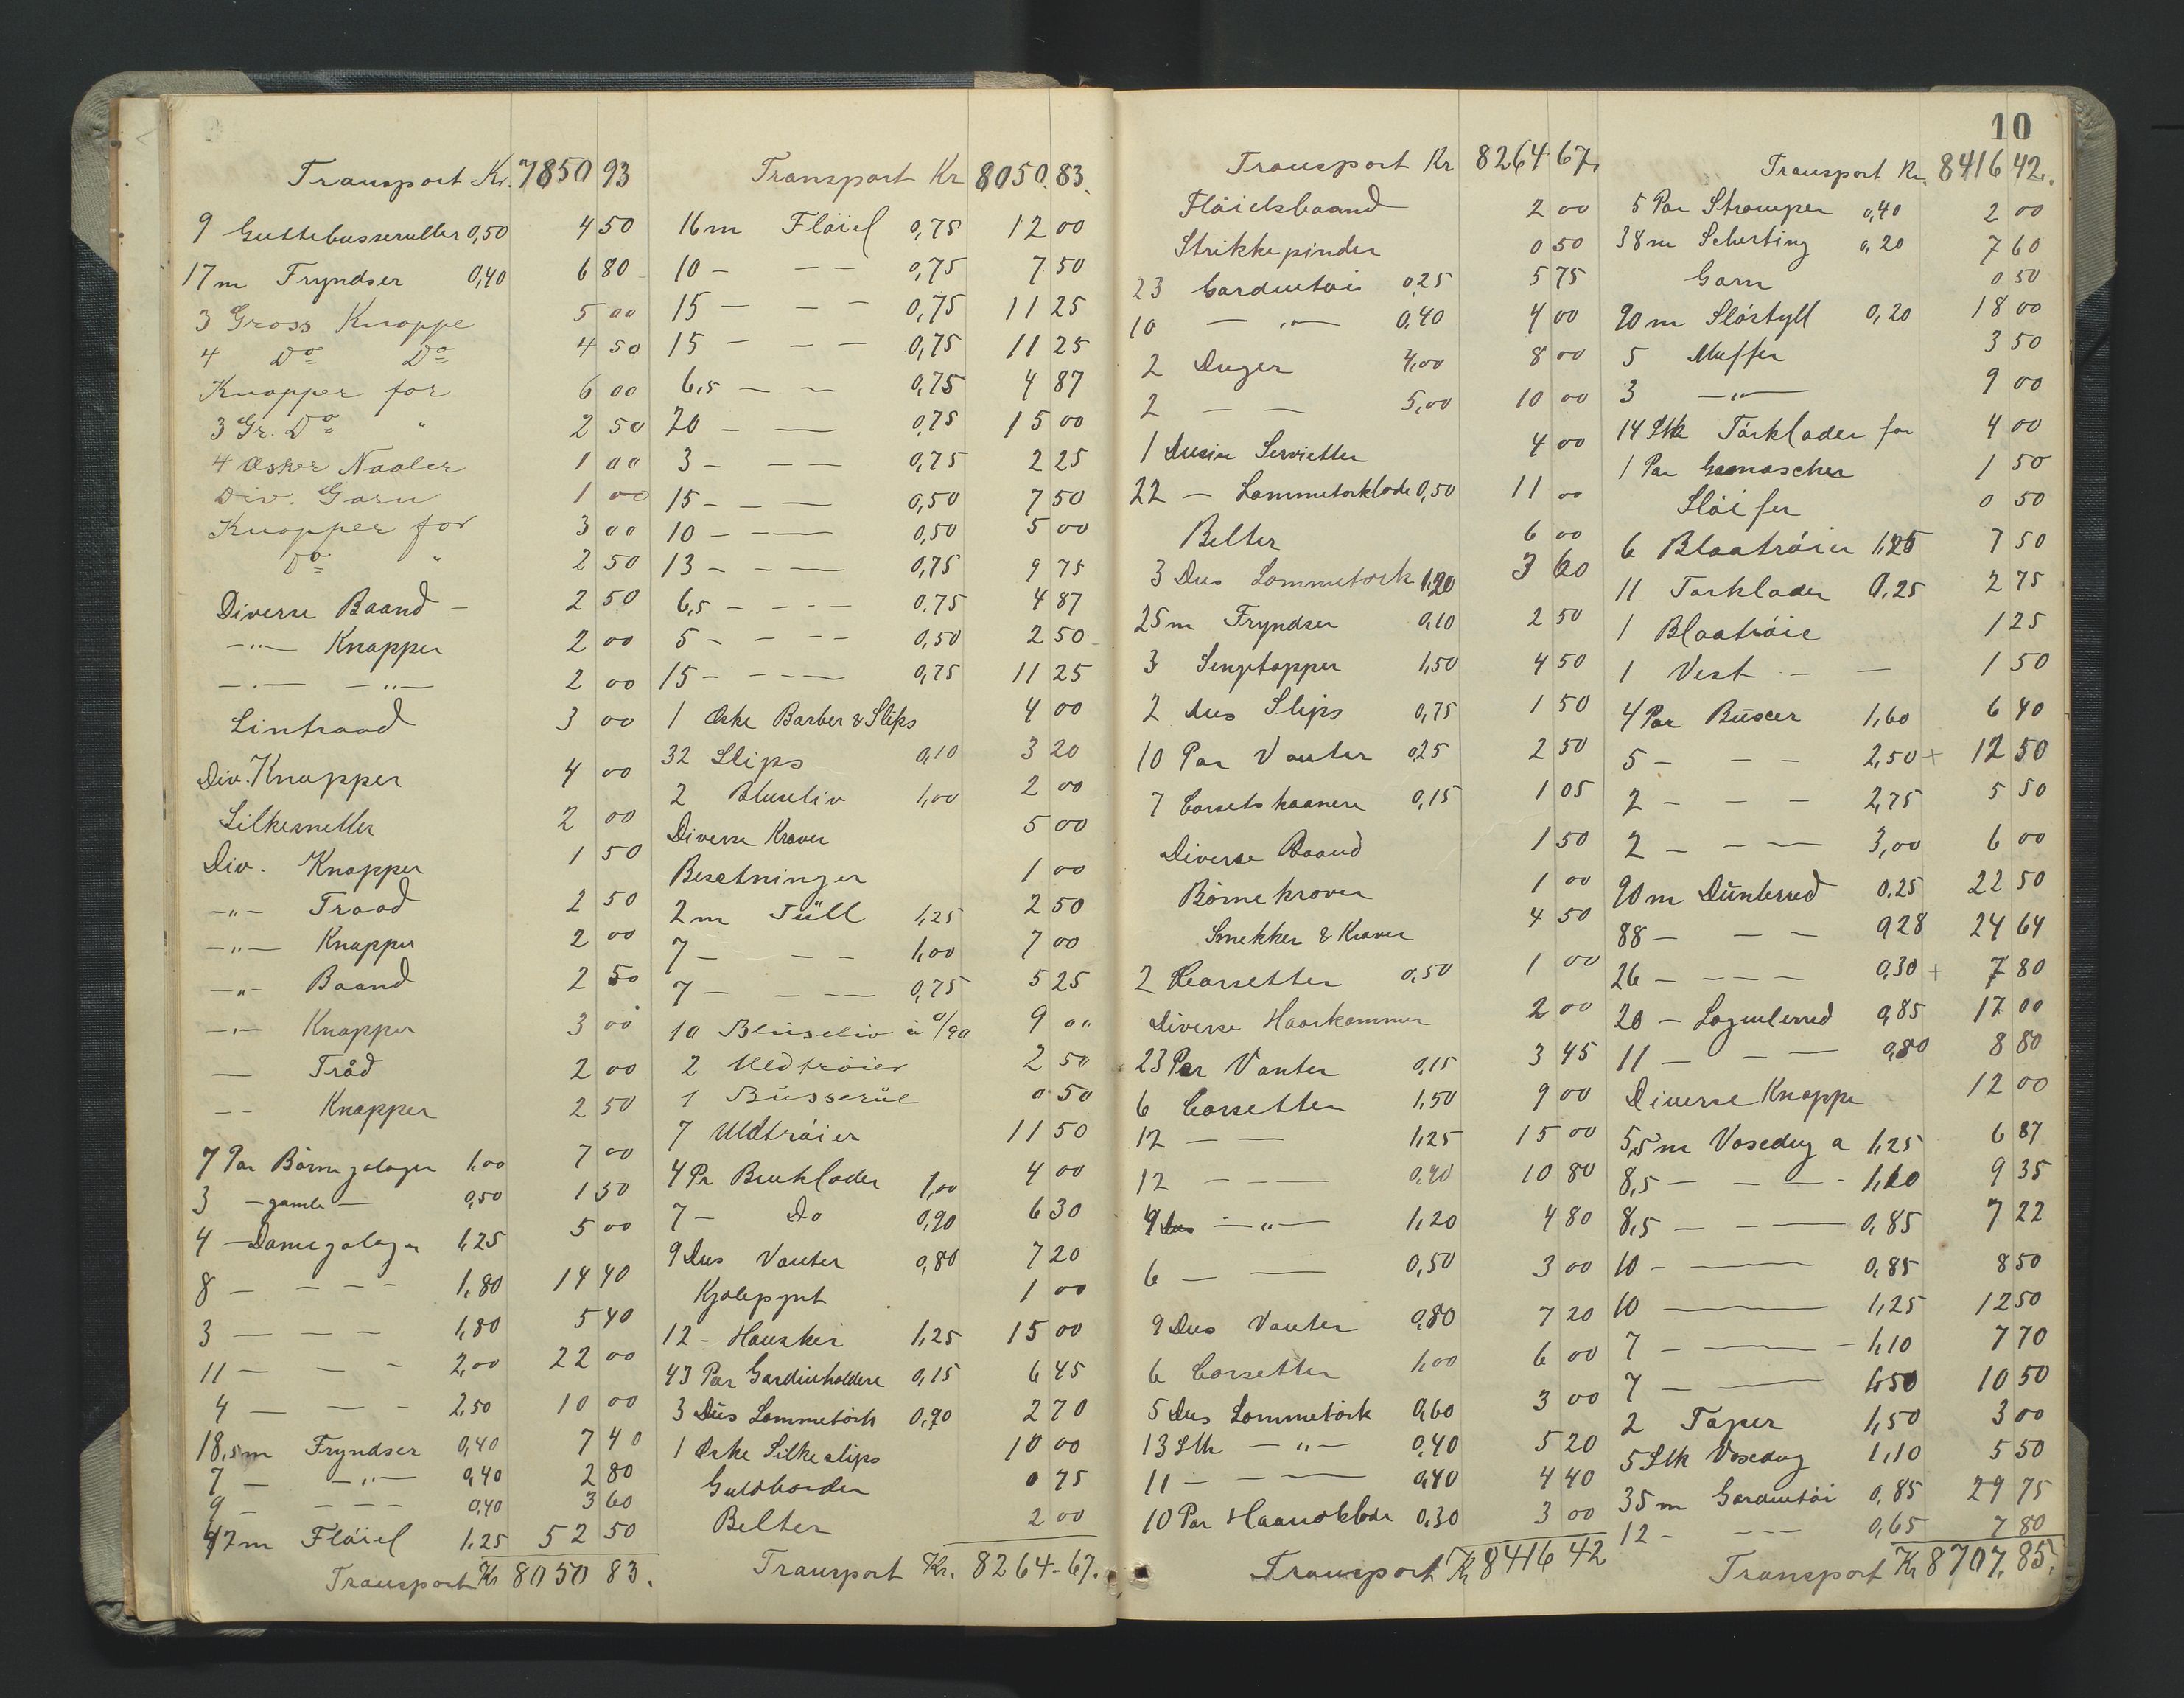 10
Transport Kr. 7850 93
9 Guttebusseruller 0,50 4 50
17 m Fryndser 0,40 6 80
3 Gross Knappe 5 00
4 Do Do 4 50
Knapper for 6 00
3 Gr. Do " 2 50
4 Æsker Naaler 1 00
Div. Garn 1 00
Knapper for 3 00
Do " 2 50
Diverse Baand - 2 50
-"- Knapper 2 00
-"- -"- 2 00
Lintraad 3 00
Div. Knapper 4 00
Silkesnetter 2 00
Div. Knapper 1 50
-"- Traad 2 50
-"- Knapper 2 00
-"- Baand 2 50
-"- Knapper 3 00
- Tråd 2 00
-- Knapper 2 50
7 Par Börnegalager 1,00 7 00
3 - gamle - 0,50 1 50
4 - Damegalager 1,25 5 00
8 - - - - 1,80 14 40
3 - - - - 1,80 5 40
11 - - - - 2,00 22 00
4 - - - - 2,50 10 00
18,5 m Fryndser 0,40 7 40
7 - -"- 0,40 2 80
9 - - - - 0,40 3 60
42 m Flöiel 1,25 52 50
Transport Kr 8050 83.
Transport Kr 8050.83.
16 m Flöiel 0,75 12 00
10 - - - 0,75 7 50
15 - - - 0,75 11 25
15 - - - - 0,75 11 25
6,5 - - 0,75 4 87
20 - - 0,75 15 00
3 - - - 0,75 2 25
15 - - - 0,50 7 50
10 - - - 0,50 5 00
13 - - - - 0,75 9 75
6,5 - - - - 0,75 4 87
5 - - - - 0,50 2 50
15 - - - - 0,75 11 25
1 Æske Barber & Slips 4 00
32 Slips 0,10 3 20
2 Bluseliv 1,00 2 00
Diverse Kraver 5 00
Besetninger 1 00
2 m Tüll 1,25 2 50
7 - - - 1,00 7 00
7 - - - - 0,75 5 25
10 Blüseliv à 0/90 9 00
2 Uldtröier 2 50
1 Büsserül 0 50
7 Uldtröier 11 50
4 Pr Benklader 1,00 4 00
7 - Do 0,90 6 30
9 Dus Vanter 0,80 7 20
Kjolepynt 1 00
12 - Hansker 1,25 15 00
43 Par Gardinholdere 0,15 6 45
3 Düs Lommetörk 0,90 2 70
1 Æske Silkeslips 10 00
Guldborder 0 75
Belter 2 00
Transport Kr. 8264-67.
Transport Kr 8264 67.
Flöielsbaand 2 00
Strikkepinder 0 50
23 Gardintöi 0,25 5 75
10 -"- 0,40 4 00
2 Duger 4,00 8 00
2 - - 5,00 10 00
1 Dusin Servietter 4 00
22 - Lommetorklade 0,50 11 00
Belter 6 00
3 Dus Lommetörk 1,20 3 60
25 m Fryndser 0,10 2 50
3 Sengtapper 1,50 4 50
2 Dus Slips 0,75 1 50
10 Par Vanter 0,25 2 50
7 Corsetskaanere 0,15 1 05
Diverse Baand 1 50
Börnekraver 1 00
Smekker & Kraver 4 50
2 Corsetter 0,50 1 00
Diverse Haarkammer 2 00
23 Par Vanter 0,15 3 45
6 Corsetter 1,50 9 00
12 - - 1,25 15 00
12 - - - 0,90 10 80
4 Dus -"- 1,20 4 80
6 - - 0,50 3 00
9 Dus Vanter 0,80 7 20
6 Corsetter 1,00 6 00
5 Dus Lommetörk 0,60 3 00
13 Stk -"- 0,40 5 20
11 - - - 0,40 4 40
10 Par Haandklade 0,30 3 00
Transport Kr 8416 42
Transport Kr. 8416 42.
5 Par Strömper 0,40 2 00
38 m Scherting 0,20 7 60
Garn 0 50
90 m Slörtyll 0,20 18 00
5 Muffer 3 50
3 -"- 9 00
14 Stk Törklader for 4 00
1 Par Gamascher 1 50
Slöifer 0 50
6 Blaatröier 1,25 7 50
11 Torklader 0,25 2 75
1 Blaatröie 1 25
1 Vest - - 1 50
4 Par Büxer 1,60 6 40
5 - - - 2,50 + 12 50
2 - - - 2,75 5 50
2 - - - 3,00 6 00
90 m Dünlerred 0,25 22 50
88 - - - 0,28 24 64
26 - - - - 0,30 + 7 80
20 - Lagenlerred 0,85 17 00
11 - - - 0,80 8 80
Diverse Knappe 12 00
5,5 m Voxedug a 1,25 6 87
8,5 - - - - 1,10 9 35
8,5 - - - 0,85 7 22
10 - - 0,85 8 50
10 - 1,25 12 50
7 - - - 1,10 7 70
7 - - 1,50 10 50
2 Taper 1,50 3 00
5 Stk Voxedug 1,10 5 50
35 m Gardintöi 0,85 29 75
12 - - - - 0,65 7 80
Transport Kr 8707,85.